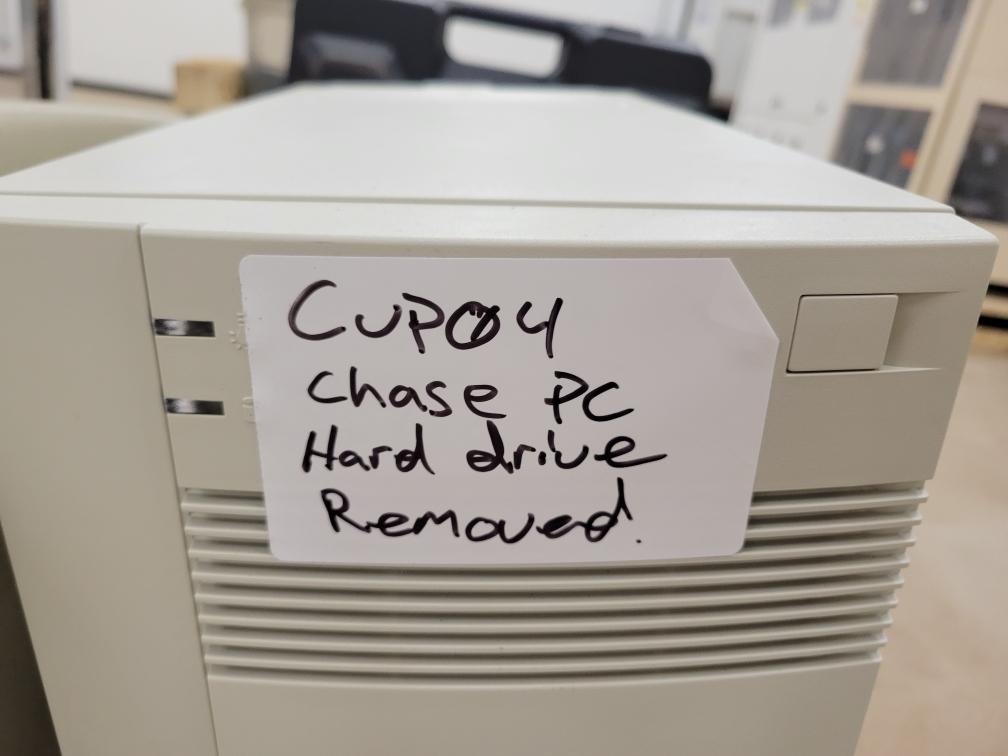 CUP04
Chase PC
Hard drive
Removed.